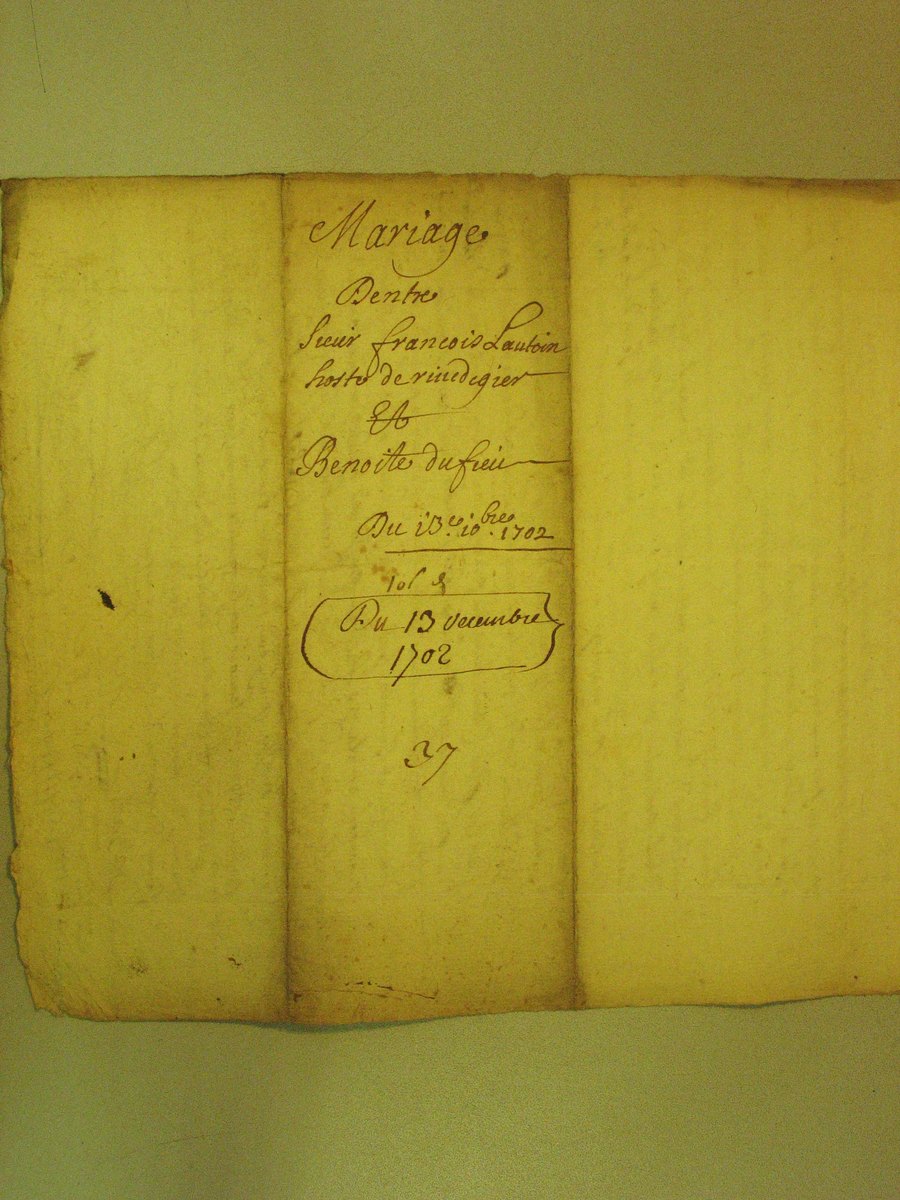 Mariage
Dentre
Sieur francois Lautoin
hoste de rivedegier
Et
Benoite du fieu
Du 13e. 10bre. 1702
Du 13 decembre
1702
37